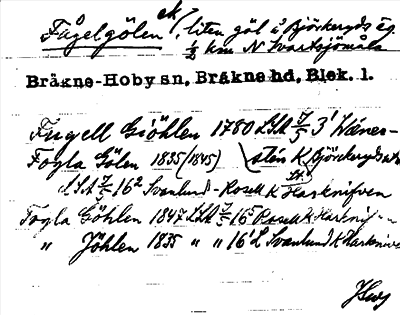 Fågelgölen ek, liten göl å Björkeryds äg.
½ km N Svartsjömåla
Bräkne-Hoby sn, Bräkne hd, Blek. l.
Fugell Giöhlen 1780 LSA 7/5 3¹ Hänes-
Fogla Gölen 1835 (1845) sten K Björkeryds
LSA 7/5 16² Svanlund - Rosell K Lt. Harknifven
Fogla Göhlen 1847 LSA 7/5 16⁵ Rosell K Harknif
" Jöhlen 1835 " " 16² Svanlund K Harkniv